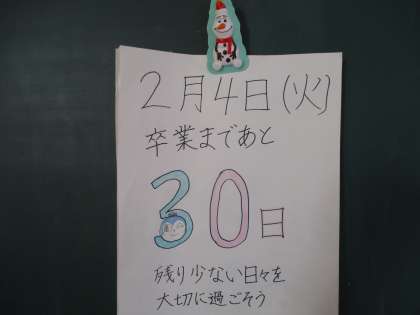 2月4日(火)
卒業まであと
30日
残り少ない日々を
大切に過ごそう